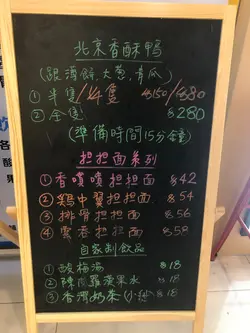 北京香酥鴨
(跟薄餅、大葱、青瓜)
① 半隻/¼隻 $150/$80
② 全隻 $280
(準備時間15分鐘)
担担面系列
① 香噴噴担担面 $42
② 鷄中翼担担面 $54
③ 排骨担担面 $56
④ 雲吞担担面 $58
自家制飲品
① 酸梅湯 $18
② 陳皮羅漢果水 $18
③ 香滑奶茶 $18
酸
果